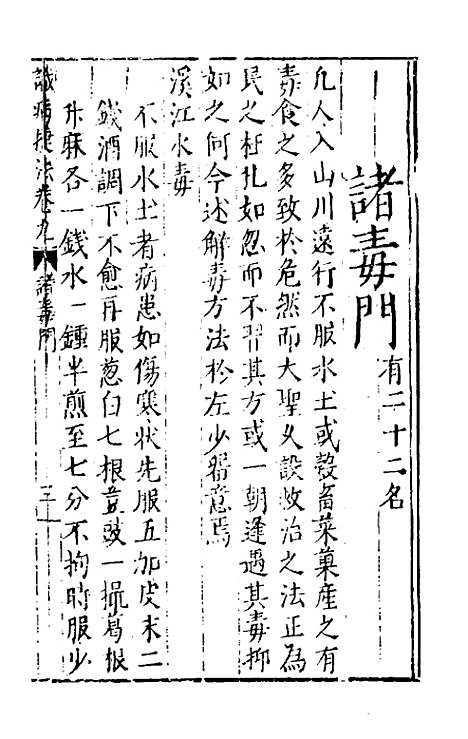 諸毒門有二十二名
凡人入山川遠行不服水土或穀畜菜菓產之有
毒食之多致於危然而大聖又設救治之法正為
民之枉扎如忽而不習其方或一朝逢遇其毒抑
如之何今述解毒方法於左少畱意焉
溪江水毒
不服水土者病患如傷寒狀先服五加皮末二
錢酒調下不愈再服葱白七根荳豉一撮葛根
升麻各一錢水一鍾半煎至七分不拘時服少
識病捷法卷九 諸毒門 三